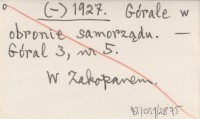 (-) 1927. Górale w
obronie samorządu. —
Góral 3, nr 5.
W Zakopanem.